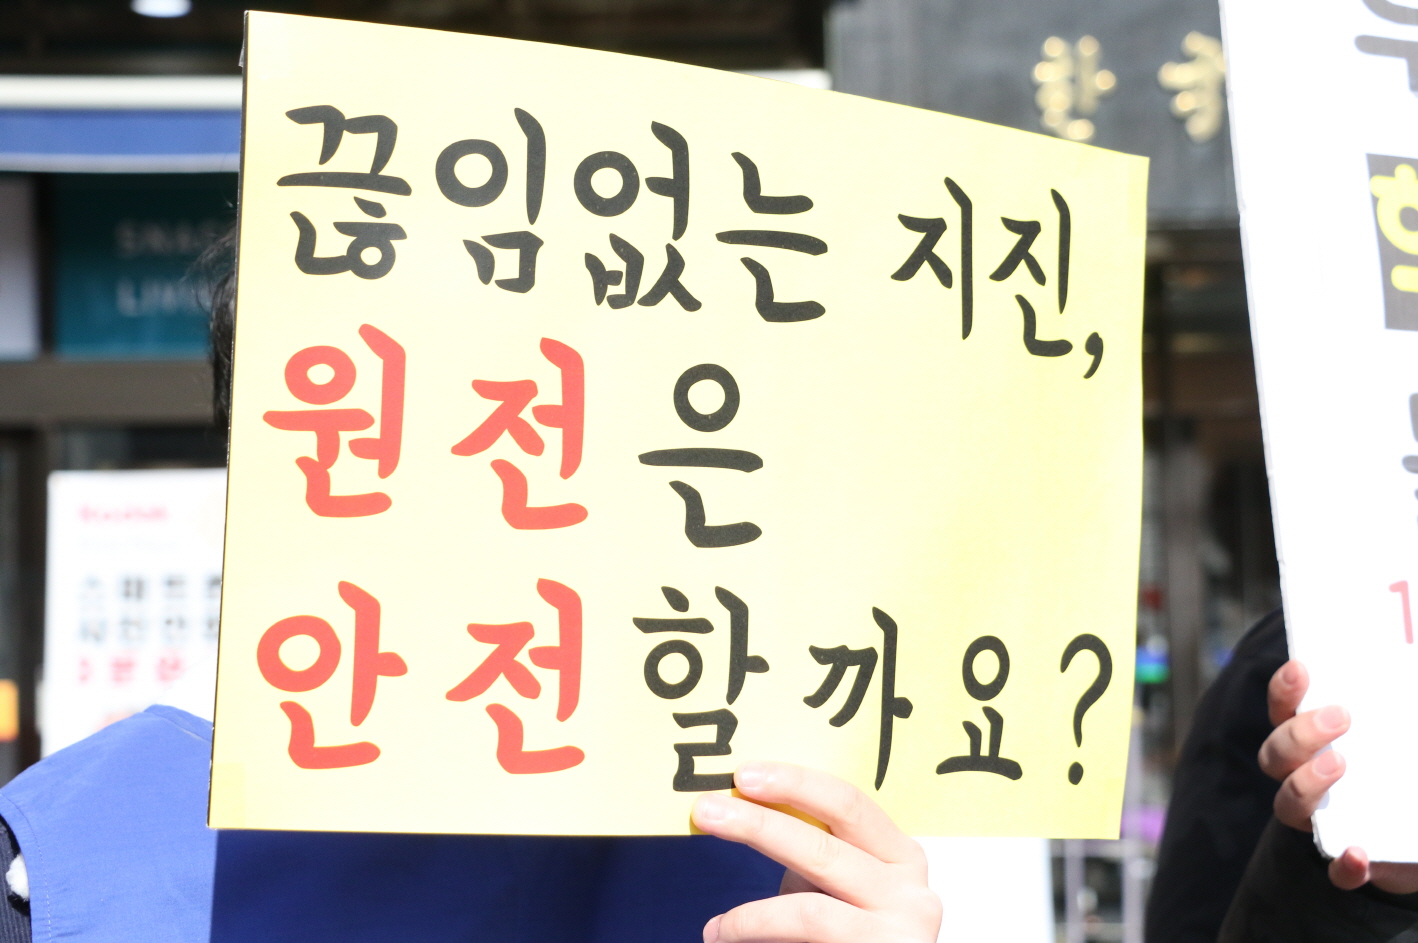 끊임없는 지진,
원전은
안전할까요?